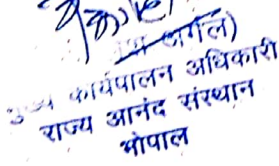 अर्गल)
मुख्य कार्यपालन अधिकारी
राज्य आनंद संस्थान
भोपाल